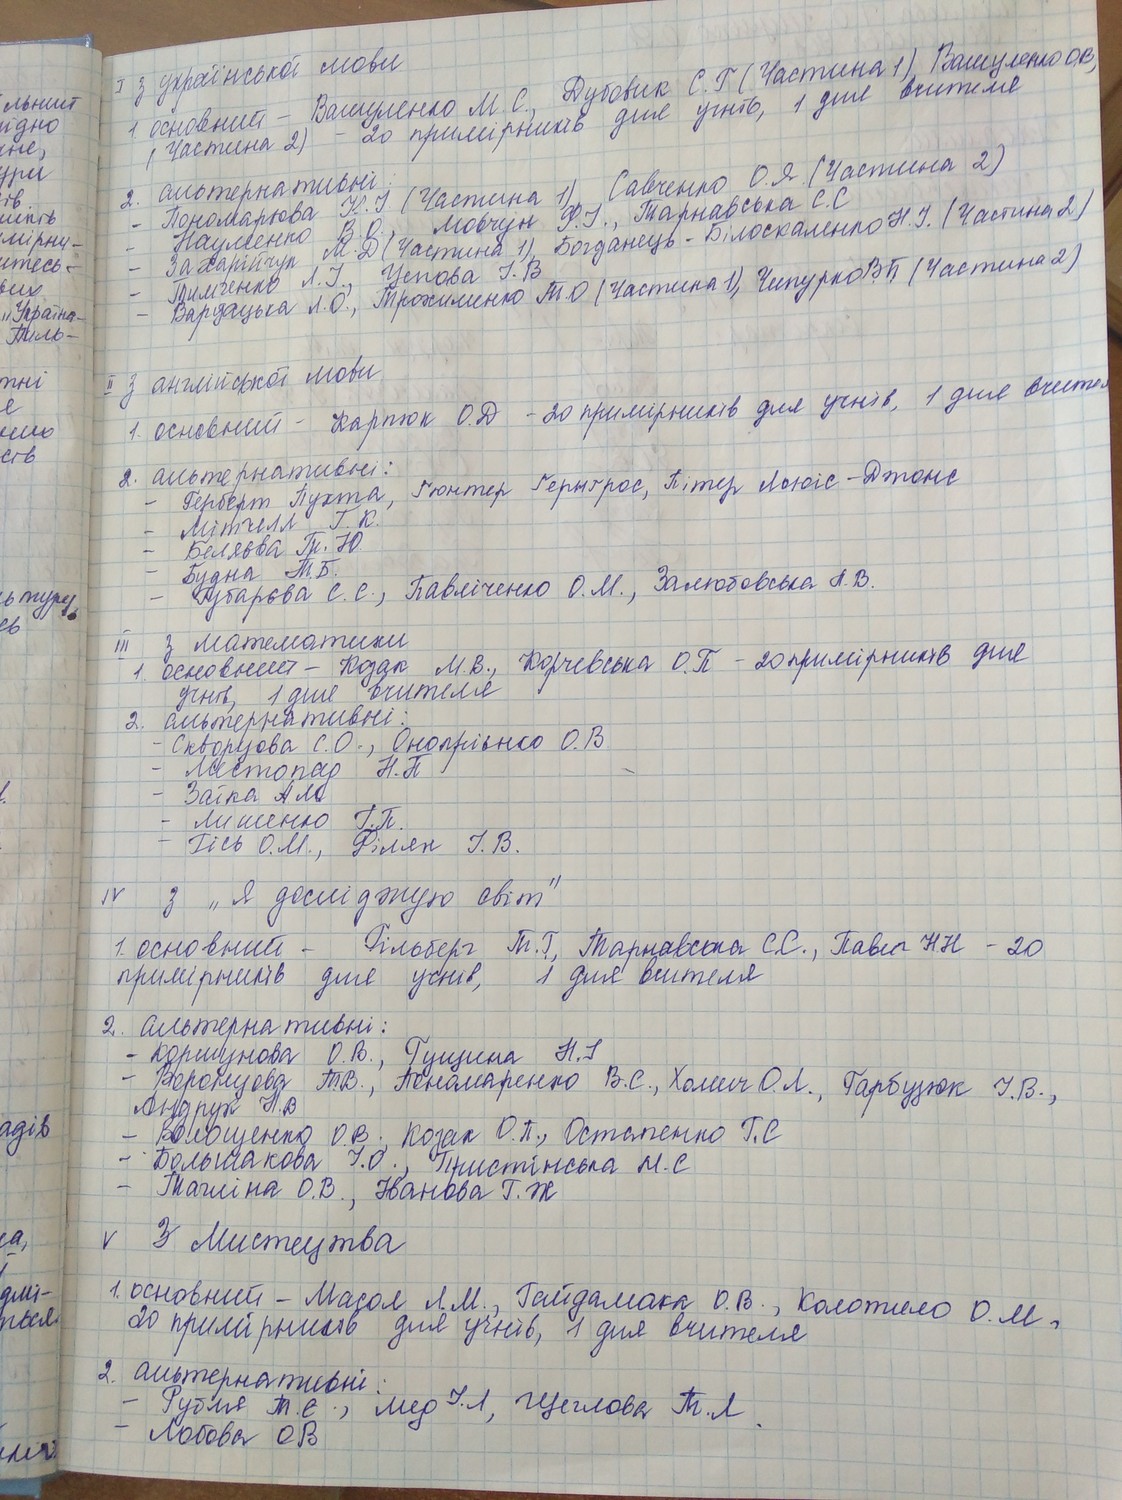 I З української мови
1. основний – Вашуленко М. С., Дубовик С. Г (Частина 1), Вашуленко О.В,
(Частина 2) – 20 примірників для учнів, 1 для вчителя
2. альтернативні:
- Пономарьова К.І (Частина 1), Савченко О.Я (Частина 2)
- Науменко В.О., Мовчун Ф.І., Тарнавська С.С
- Захарійчук М.Д (Частина 1), Богданець-Білоскаленко Н.І. (Частина 2)
- Тимченко Л.І., Цепова І.В
- Вардацька Л.О., Трохименко Т.О (Частина 1), Чипурко В.П (Частина 2)
II З англійської мови
1. основний – Карпюк О.Д – 20 примірників для учнів, 1 для вчителя
2. альтернативні:
- Герберт Пухта, Гюнтер Гернгрос, Пітер Люіс-Джонс
- Мітчелл Г. К.
- Беляєва Т. Ю
- Будна Т.Б.
- Губарєва С. С., Павліченко О. М., Залюбовська Л.В.
III З математики
1. основний – Козак М.В., Корчевська О.П – 20 примірників для
учнів, 1 для вчителя
2. альтернативні:
- Скворцова С.О., Онопрієнко О.В
- Листопад Н.П
- Заїка А.М.
- Лишенко Г.П.
- Гісь О.М., Філяк І.В.
IV З „Я досліджую світ"
1. основний – Гільберг Т.Г, Тарнавська С.С., Павич Н.Н – 20
примірників для учнів, 1 для вчителя
2. альтернативні:
- Коршунова О.В., Гущина Н.І
- Воронцова Т.В., Пономаренко В.С., Хомич О.Л., Гарбузюк І.В.,
Андрук Н.В
- Волощенко О.В., Козак О.П., Остапенко Г.С
- Большакова І.О., Пристінська М.С
- Тагліна О.В., Іванова Г.Ж
V З Мистецтва
1. основний – Масол Л.М., Гайдамака О.В., Колотило О.М.,
20 примірників для учнів, 1 для вчителя
2. альтернативні:
- Рубля Т.Є., Мед І.Л, Щеглова Т.Л.
- Лобова О.В